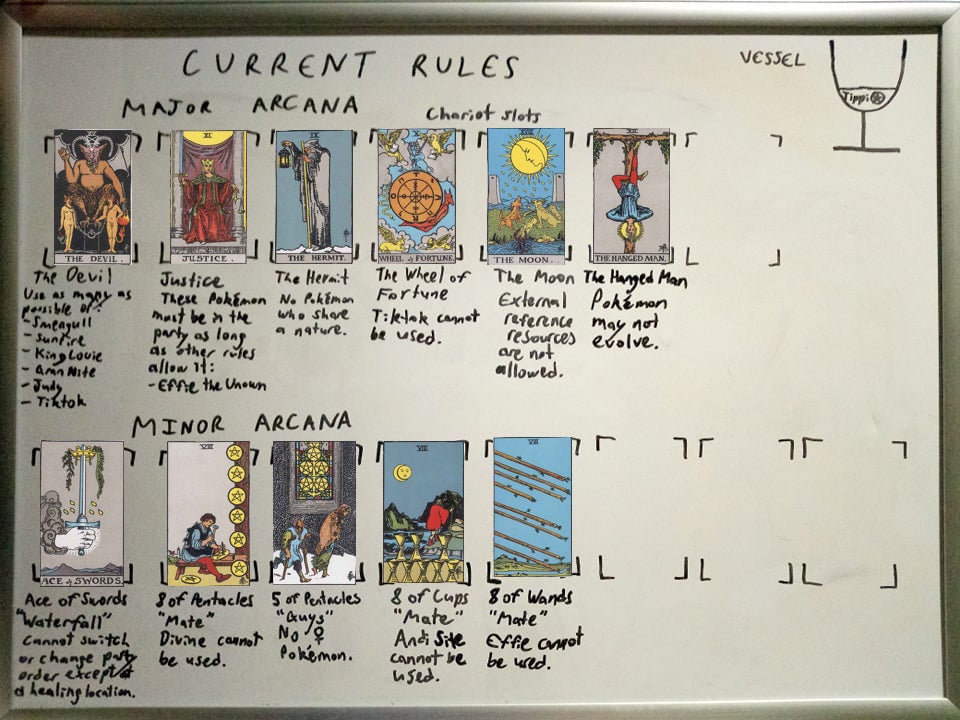 CURRENT RULES
VESSEL
Tippi
MAJOR ARCANA
Chariot slots
XV
THE DEVIL.
XI
JUSTICE.
IX
THE HERMIT.
X
WHEEL of FORTUNE.
XVIII
THE MOON.
XII
THE HANGED MAN.
The Devil
Use as many as
possible of:
- Smeagull
- Sunfire
- King Louie
- GranNite
- Judy
- Tiktok
Justice
These Pokémon
must be in the
party as long
as other rules
allow it:
- Effie the Unown
The Hermit
No Pokémon
who share
a nature.
The Wheel of
Fortune
Tiktok cannot
be used.
The Moon
External
reference
resources
are not
allowed.
The Hanged Man
Pokémon
may not
evolve.
MINOR ARCANA
ACE of SWORDS.
VIII
VIII
VIII
Ace of Swords
"Waterfall"
Cannot switch
or change party
order except at
a healing location.
8 of Pentacles
"Mate"
Divine cannot
be used.
5 of Pentacles
"Guys"
No ♀
Pokémon.
8 of Cups
"Mate"
Andi Site
cannot be
used.
8 of Wands
"Mate"
Effie cannot
be used.